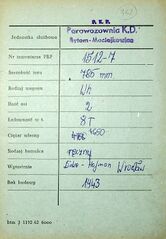 P.K.P.
Jednostka służbowa Parowozownia K.D.
Bytom-Maciejkowice
Nr inwentarza PKP 1512-7
Szerokość toru 785 mm
Rodzaj wagonu Wh
Ilość osi 2
Ładowność w t. 8T
Ciężar własny 4660
Rodzaj hamulca ręczny
Wytwórnia Linke-Hofman Wrocław
Rok budowy 1943